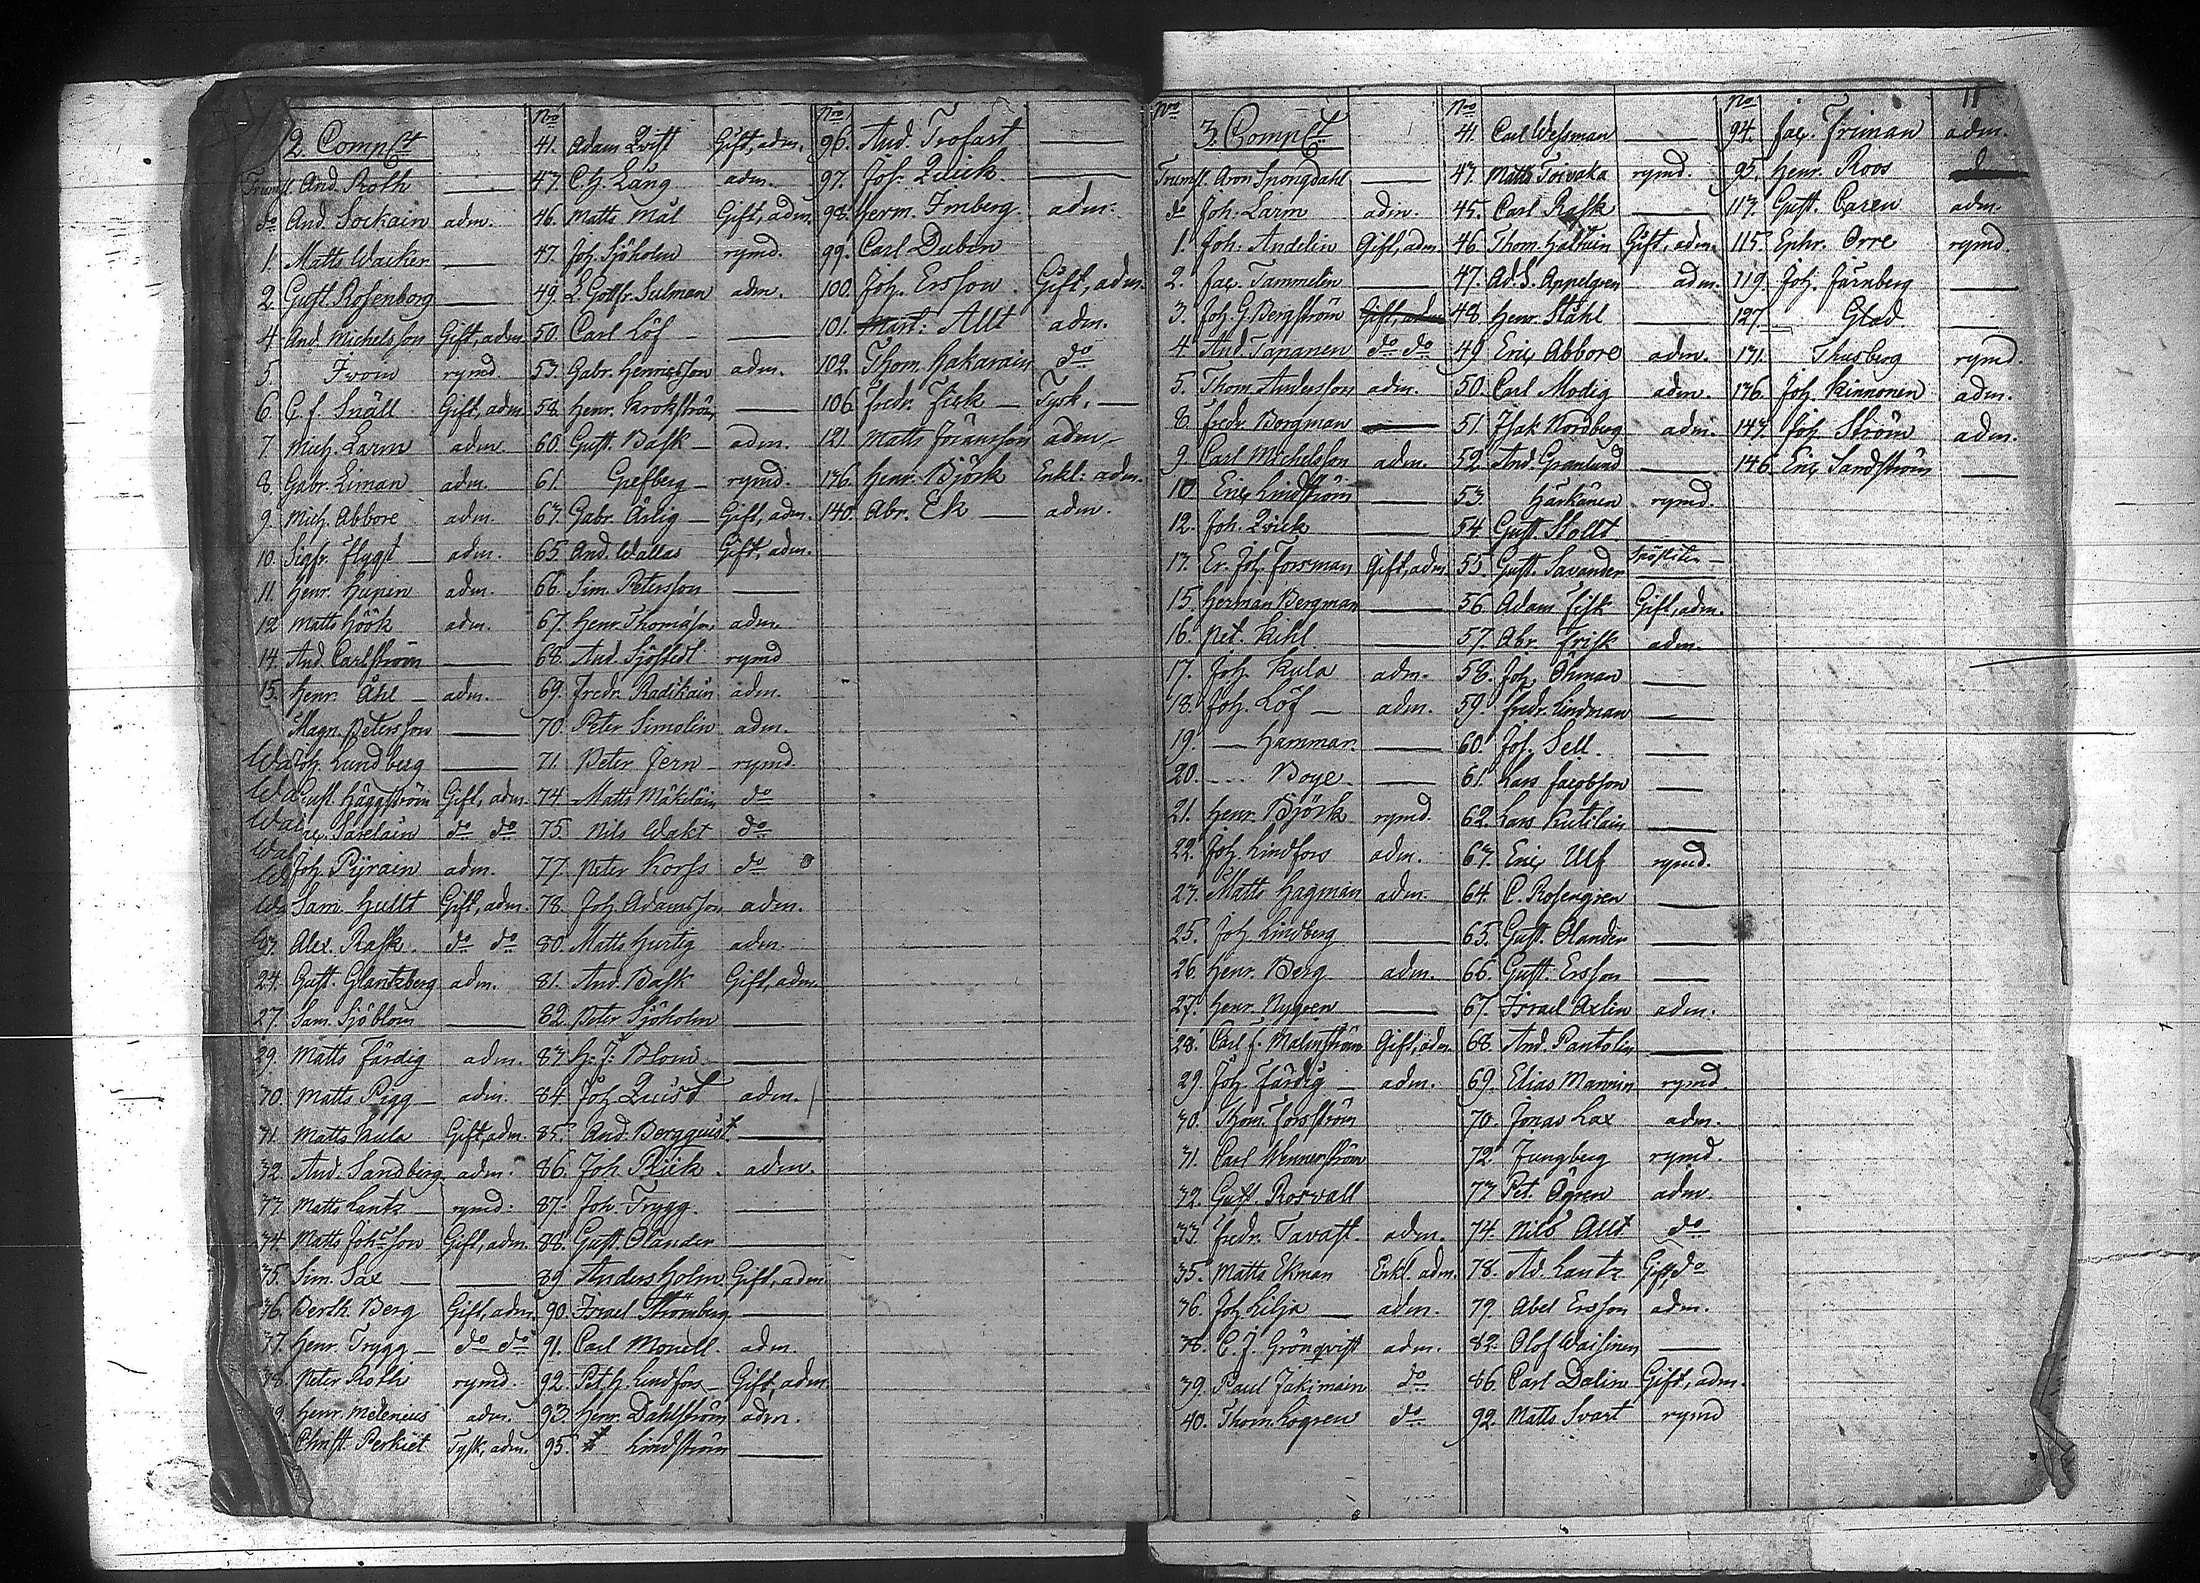 2. Comp.t
Trumsl. And. Roth ——
do And. Sockain adm.
1. Matts Wacker ——
2. Gust. Rosenborg ——
4. And. Michelsson Gift, adm.
5. From rymd.
6. C. F. Snäll Gift, adm.
7. Mich. Larm adm.
8. Gabr. Liman adm.
9. Mich. Abbore adm.
10. Sigfr. Flygt adm.
11. Henr. Hupin adm.
12. Matts Höök adm.
14. And. Carlström ——
15. Henr. Åhl adm.
Magn. Petersson ——
Joh. Lundberg ——
Gust. Häggström Gift, adm.
Särelain do do
Joh. Pyrain adm.
Sam. Hullt Gift, adm.
Alex. Rask do do
24. Gust. Glantzberg adm.
27. Sam. Sjöblom ——
29. Matts Färdig adm.
30. Matts Pigg adm.
31. Matts Kula Gift, adm.
32. And. Sandberg adm.
33. Matts Lantz rymd.
34. Matts Joh:sson Gift, adm.
35. Sim. Sax ——
36. Berth. Berg Gift, adm.
37. Henr. Trygg do do
38. Peter Roth rymd.
39. Henr. Melenius adm.
Christ. Perkiet Tysk, adm.
No
41. Adam Qvist Gift, adm.
43. C. H. Lång adm.
46. Matts Mål Gift, adm.
47. Joh. Sjöholm rymd.
49. L. Gottfr. Sulman adm.
50. Carl Löf ——
53. Gabr. Henricsson adm.
58. Henr. Krokström ——
60. Gust. Bask adm.
61. Grefberg rymd.
63. Gabr. Ärlig Gift, adm.
65. And. Wallas Gift, adm.
66. Sim. Petersson ——
67. Henr. Thomass. adm.
68. And. Sjöstedt rymd
69. Fredr. Radikain adm.
70. Peter Simolin adm.
71. Peter Jern rymd.
74. Matts Mäkeläin do
75. Nils Wakt do
77. Peter Korss do
78. Joh. Adamsson adm.
80. Matts Hurtig adm.
81. And. Bask Gift, adm.
82. Peter Sjöholm ——
83. H: J: Blom ——
84. Joh. Quist adm.
85. And. Bergquist ——
86. Joh. Rück adm.
87. Joh. Trygg. ——
88. Gust. Olander ——
89. Anders Holm Gift, adm.
90. Israel Strömberg ——
91. Carl Monell. adm.
92. Pet. H. Lindfors Gift, adm.
93. Henr. Dahlström adm.
95. Lindström ——
No
96. And. Trofast ——
97. Joh. Quick ——
98. Herm. Imberg adm.
99. Carl Dubin
100. Joh. Ersson Gift, adm.
101. Mart: Allt adm.
102. Thom. Hakarain do
106. Fredr. Fick Tysk. ——
121. Matts Jöransson adm.
136. Henr. Björk Enkl. adm.
140. Abr. Ek adm.
11
No
3. Comp.t
Trumsl. Aron Spongdahl ——
do Joh. Larm adm.
1. Joh. Andelin Gift, adm.
2. Jac. Tammelin ——
3. Joh. G. Bergström Gift, adm
4. And. Tapanen do do
5. Thom. Andersson adm.
8. Fredr. Borgman ——
9. Carl Michelsson adm.
10. Eric Lindström ——
12. Joh. Quick ——
13. Er. Joh. Forsman Gift, adm.
15. Herman Bergman ——
16. Pet. Kihl ——
17. Joh. Kula adm.
18. Joh. Löf adm.
19. —— Hammar ——
20. —— Boye ——
21. Henr. Björk rymd.
22. Joh. Lindfors adm.
23. Matts Hagman adm.
25. Joh. Lindberg ——
26. Henr. Berg adm.
27. Henr. Nygren ——
28. Carl J. Malmström Gift, adm.
29. Joh. Färdig adm.
30. Thom. Forsström
31. Carl Wennerström
32. Gust. Rosvall
33. Fredr. Tavast. adm.
35. Matts Ekman Enkl. adm.
36. Joh. Lilja adm.
38. C. J. Grönqvist adm.
39. Paul Jakimain do
40. Thom. Logren do
No
41. Carl Wessman ——
43. Matts Toivaka rymd.
45. Carl Rask ——
46. Thom. Haltuin Gift, adm.
47. Ad. S. Appelgren adm.
48. Henr. Ståhl ——
49. Eric Abbore adm.
50. Carl Modig adm.
51. Isak Nordberg adm.
52. And. Granlund ——
53. Härkänen rymd.
54. Gust. Stollt
55. Gust. Savander
56. Adam Fisk Gift, adm.
57. Abr. Frisk adm.
58. Joh. Öhman ——
59. Fredr. Lindman ——
60. Joh. Sell. ——
61. Lars Jacobson ——
62. Lars Kutilain ——
63. Eric Ulf rymd.
64. C. Rosengren ——
65. Gust. Olander ——
66. Gust. Ersson ——
67. Israel Axlin adm.
68. And. Pantolin ——
69. Elias Mannin rymd.
70. Jonas Lax adm.
72. Jungberg rymd.
73. Pet. Ögren adm.
74. Nils Allt do
78. Ad. Lantz Gift, do
79. Abel Ersson adm.
82. Olof Waisinen ——
86. Carl Dalin Gift, adm.
92. Matts Svart rymd
No
94. Jac. Friman adm.
95. Henr. Roos
113. Gust. Caren adm.
115. Ephr. Orre rymd.
119. Joh. Järnberg ——
127. Glad ——
131. Thusberg rymd.
136. Joh. Kinnonen adm.
143. Joh. Ström adm.
146. Eric Sandström ——